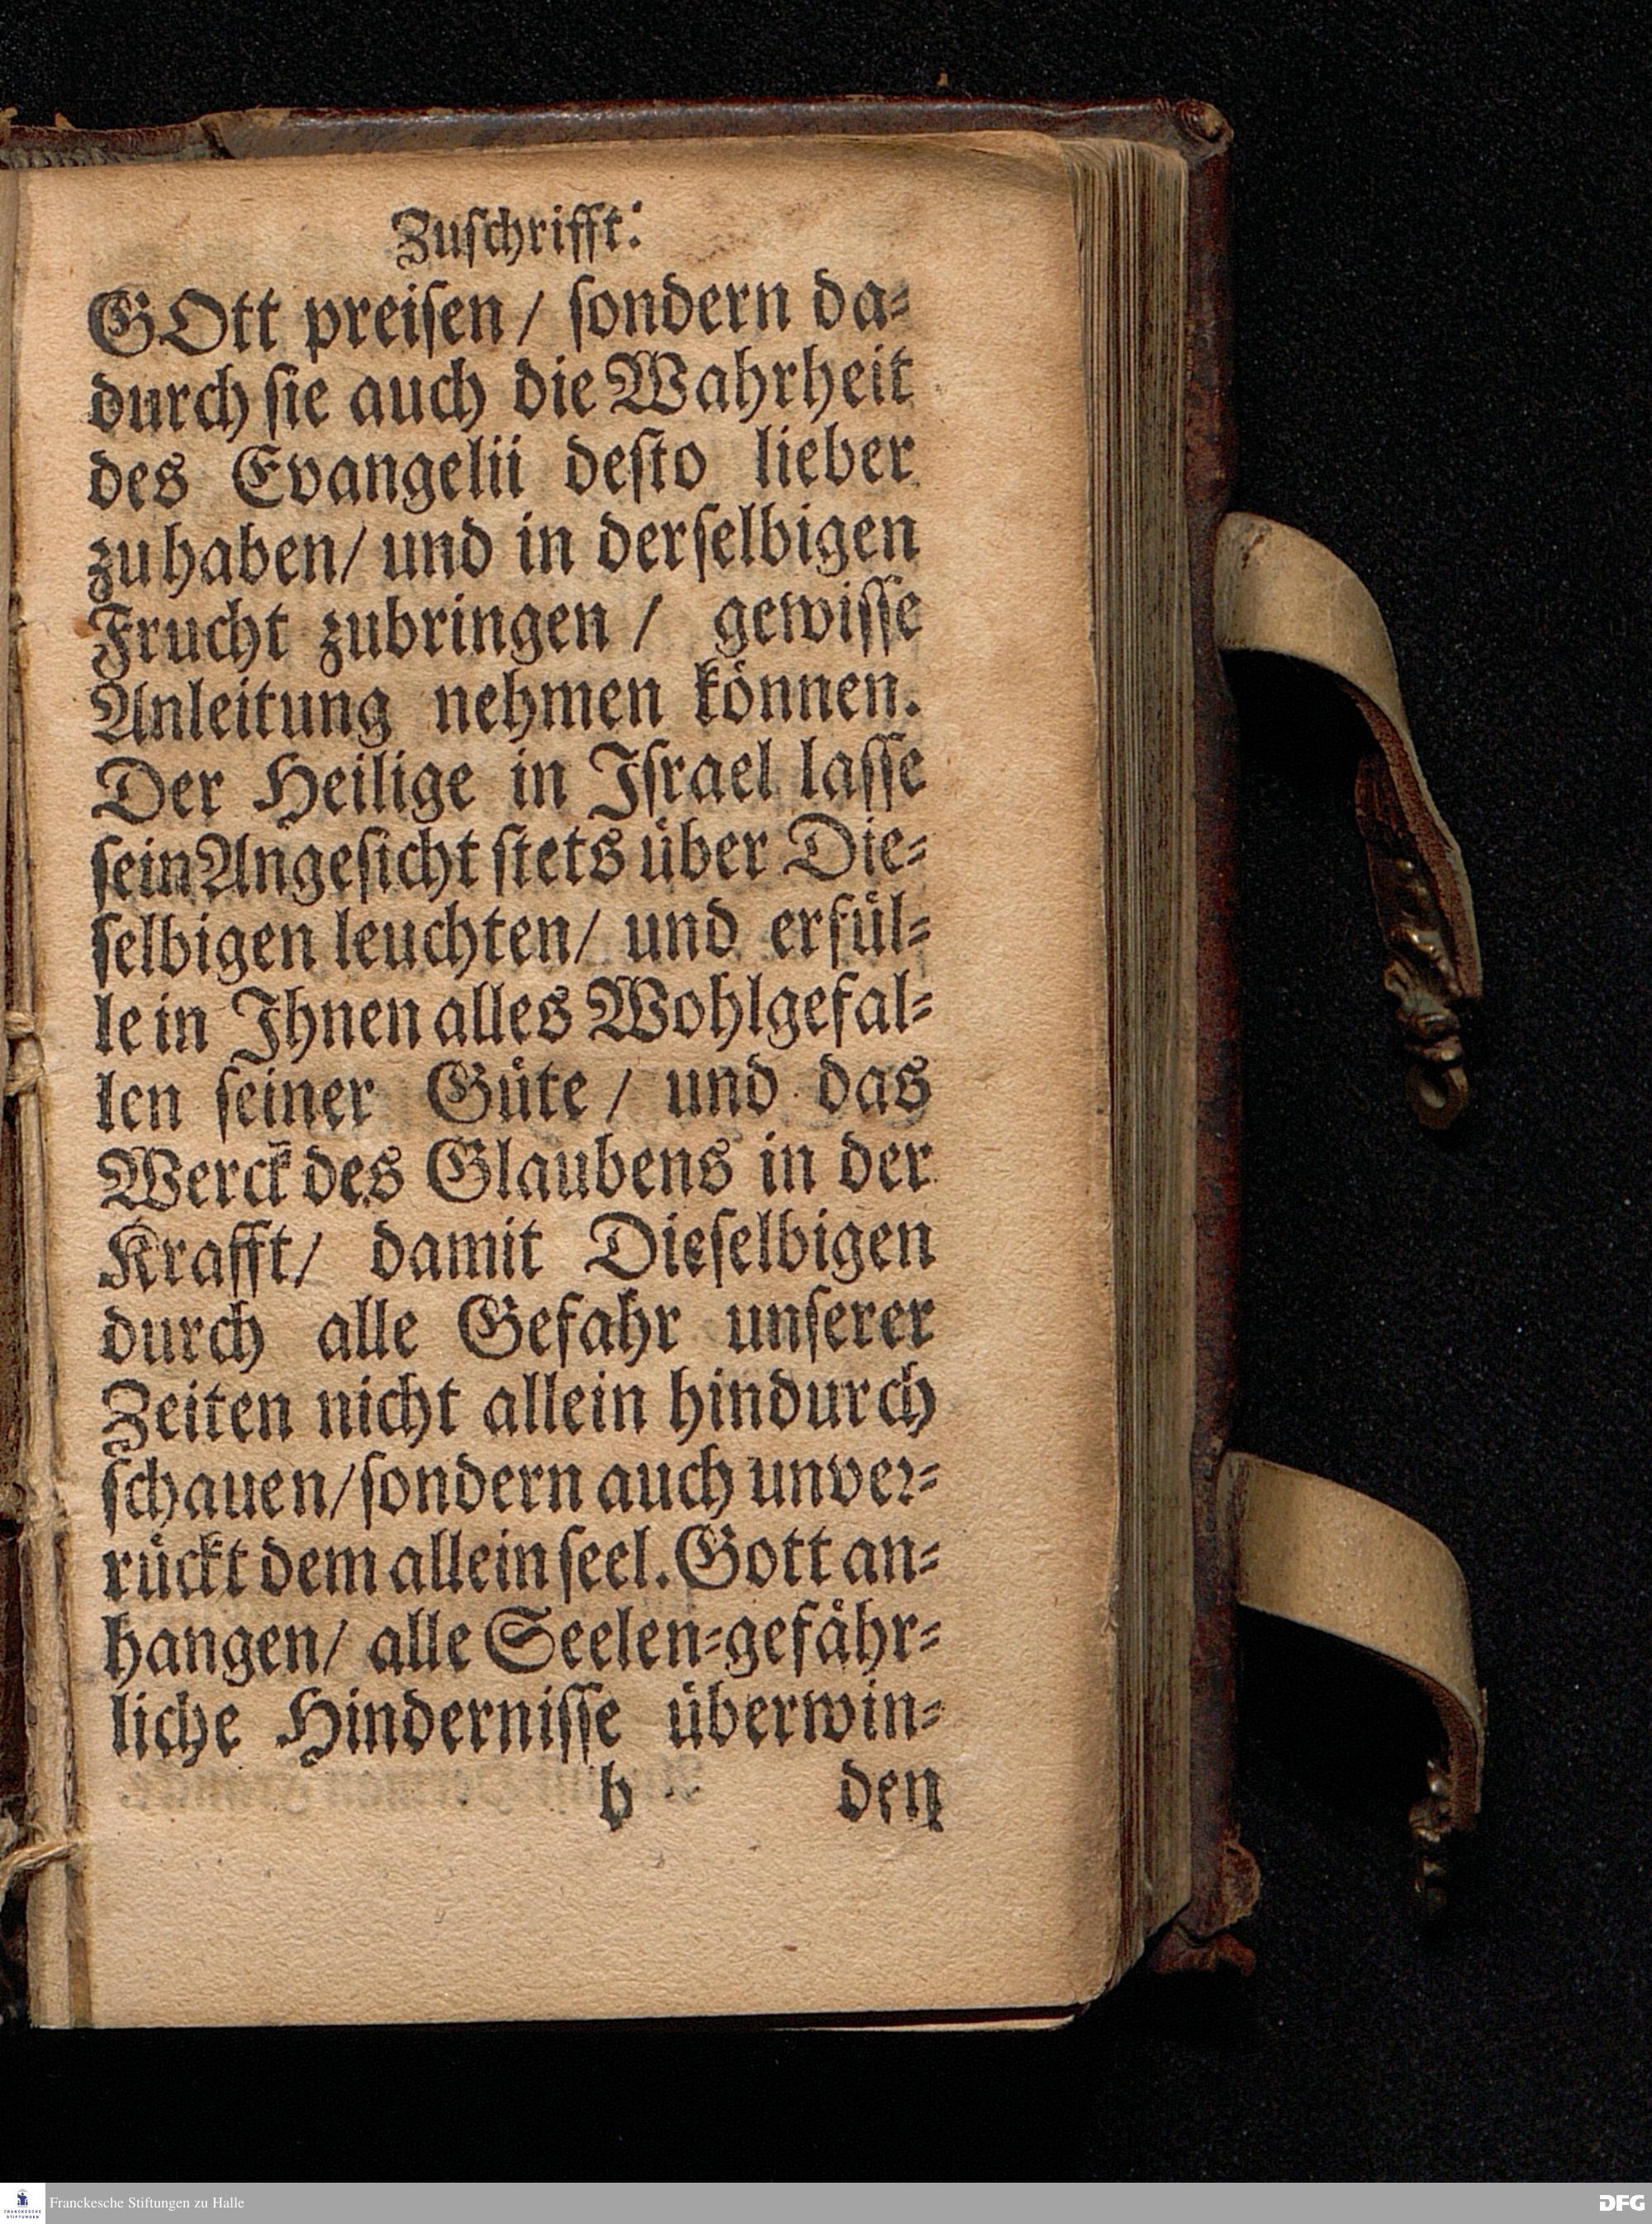 Zuſchrifft.
GOtt preiſen / ſondern da⸗
durch ſie auch die Wahrheit
des Evangelii deſto lieber
zu haben/ und in derſelbigen
Frucht zubringen / gewiſſe
Anleitung nehmen koͤnnen.
Der Heilige in Iſrael laſſe
ſein Angeſicht ſtets uͤber Die⸗
ſelbigen leuchten/ und erfuͤl⸗
le in Ihnen alles Wohlgefal⸗
len ſeiner Guͤte / und das
Werck des Glaubens in der
Krafft/ damit Dieſelbigen
durch alle Gefahr unſerer
Zeiten nicht allein hindurch
ſchauen/ ſondern auch unver⸗
ruͤckt dem allein ſeel. Gott an⸗
hangen/ alle Seelen⸗gefaͤhr⸗
liche Hinderniſſe uͤberwin⸗
b den
Franckesche Stiftungen zu Halle
DFG